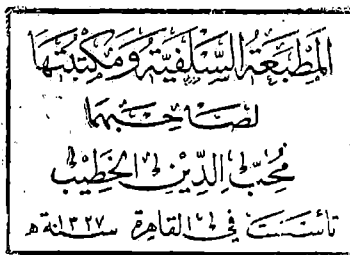 المَطْبَعَةُ السَّلَفِيَّةُ وَمَكْتَبَتُهَا
لصَاحِبِهَا
مُحِبّ الدِّيْن الخَطِيْب
تأسسَت في القاهرة سنة ١٣٢٧ هـ